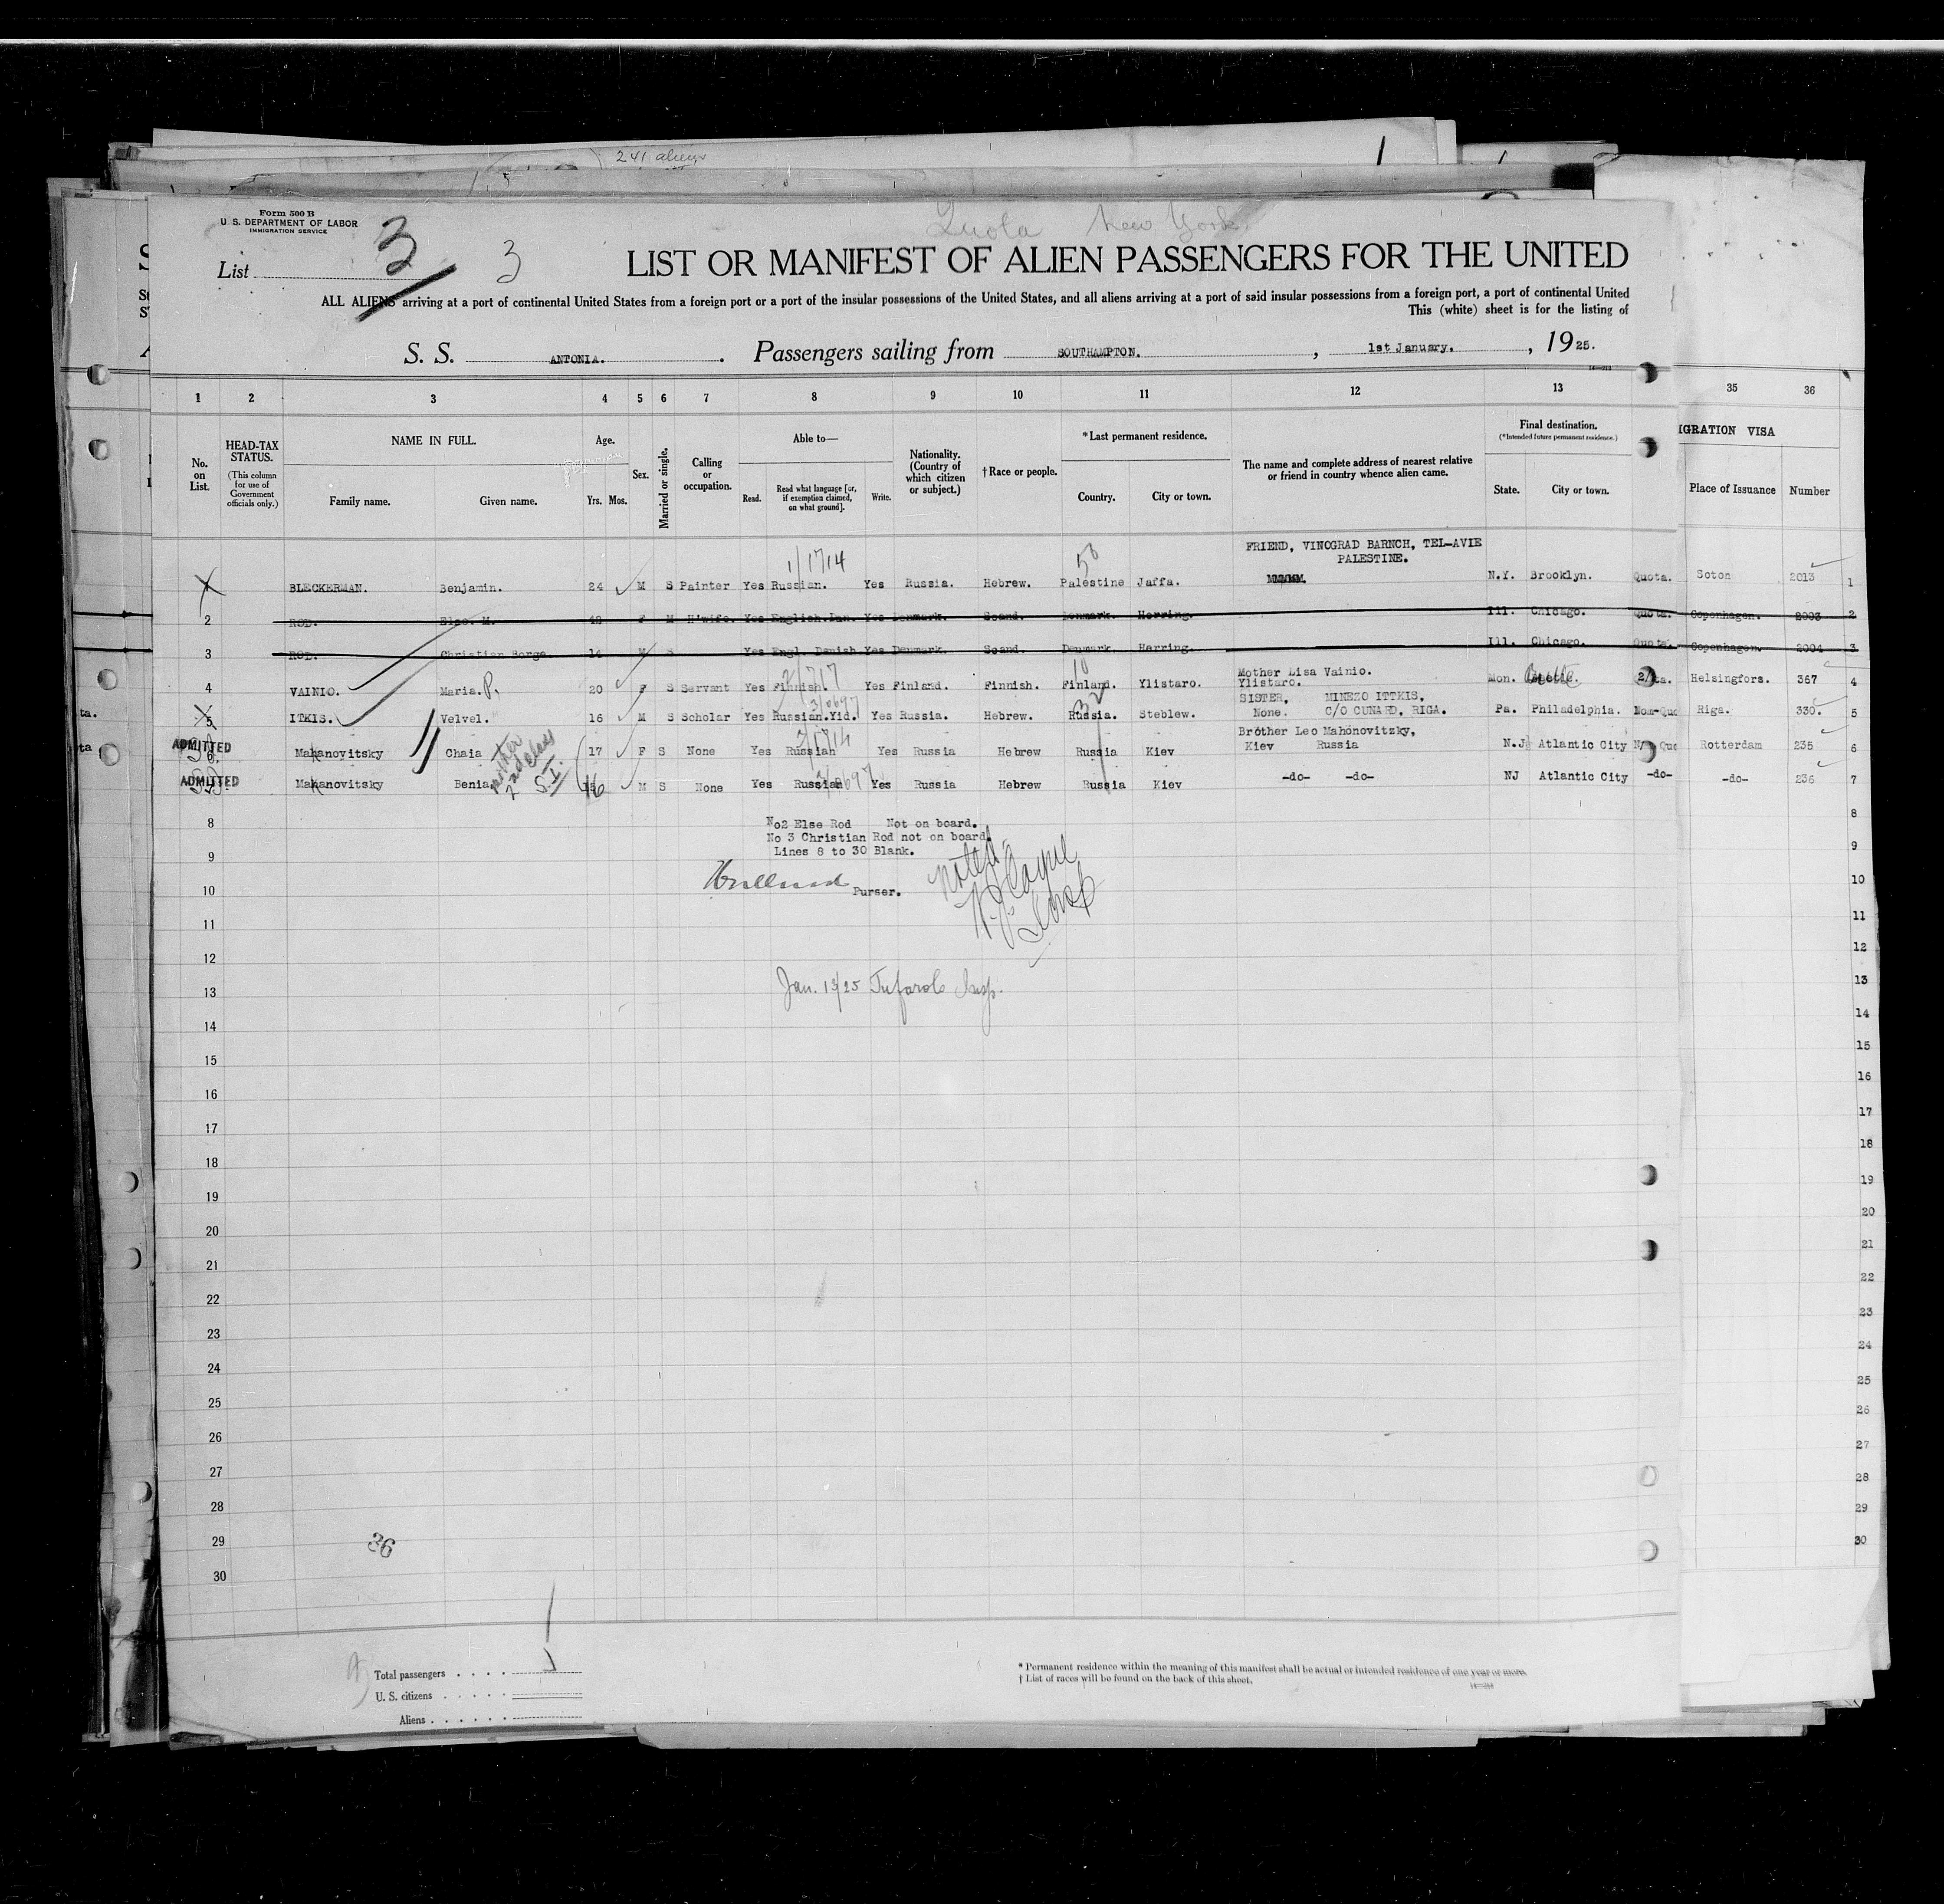 241 aliens
Form 500 B
U. S. DEPARTMENT OF LABOR
IMMIGRATION SERVICE
Quota New York
List 3 3
LIST OR MANIFEST OF ALIEN PASSENGERS FOR THE UNITED
ALL ALIENS arriving at a port of continental United States from a foreign port or a port of the insular possessions of the United States, and all aliens arriving at a port of said insular possessions from a foreign port, a port of continental United
This (white) sheet is for the listing of
S. S. ANTONIA. . Passengers sailing from SOUTHAMPTON. , 1st January. , 1925.
1 2 3 4 5 6 7 8 9 10 11 12 13 35 36
No. on List.
HEAD-TAX STATUS.
(This column for use of Government officials only.)
NAME IN FULL.
Family name. Given name.
Age.
Yrs. Mos.
Sex.
Married or single.
Calling or occupation.
Able to—
Read. Read what language [or, if exemption claimed, on what ground]. Write.
Nationality. (Country of which citizen or subject.)
†Race or people.
*Last permanent residence.
Country. City or town.
The name and complete address of nearest relative or friend in country whence alien came.
Final destination.
(*Intended future permanent residence.)
State. City or town.
IGRATION VISA
Place of Issuance Number
FRIEND, VINOGRAD BARNCH, TEL-AVIE
PALESTINE.
1/1714 58
1 BLECKERMAN. Benjamin. 24 M S Painter Yes Russian. Yes Russia. Hebrew. Palestine Jaffa. N.Y. Brooklyn. Quota. Soton 2013 1
2 ROD. Else. M. 42 F M H'wife. Yes English.Dan. Yes Denmark. Scand. Denmark. Herring. Ill. Chicago. Quota. Copenhagen. 2003 2
3 ROD. Christian Borge. 14 M S Yes Engl. Danish Yes Denmark. Scand. Denmark. Herring. Ill. Chicago. Quota. Copenhagen. 2004 3
Mother Lisa Vainio.
4 VAINIO. Maria. P. 20 F S Servant Yes Finnish. Yes Finland. Finnish. Finland. Ylistaro. Ylistaro. Mon. Butte. Helsingfors. 367 4
SISTER, MINEZO ITTKIS.
5 ITKIS. Velvel. 16 M S Scholar Yes Russian.Yid. Yes Russia. Hebrew. Russia. Steblew. None. C/O CUNARD, RIGA. Pa. Philadelphia. Non-Quo Riga. 330. 5
Brother Leo Mahonovitzky,
ADMITTED 6 Mahanovitsky Chaia 17 F S None Yes Russian Yes Russia Hebrew Russia Kiev Kiev Russia N.J Atlantic City Rotterdam 235 6
mother 2nd class S.I.
ADMITTED Mahanovitsky Benia 16 M S None Yes Russian Yes Russia Hebrew Russia Kiev -do- -do- NJ Atlantic City -do- -do- 236 7
8 No2 Else Rod Not on board. 8
No 3 Christian Rod not on board.
9 Lines 8 to 30 Blank. 9
10 Purser. noted 10
11 11
12 12
13 Jan. 13/25 Insp. 13
14 14
15 15
16 16
17 17
18 18
19 19
20 20
21 21
22 22
23 23
24 24
25 25
26 26
27 27
28 28
29 36 29
30 30
Total passengers
U. S. citizens
Aliens
* Permanent residence within the meaning of this manifest shall be actual or intended residence of one year or more.
† List of races will be found on the back of this sheet.